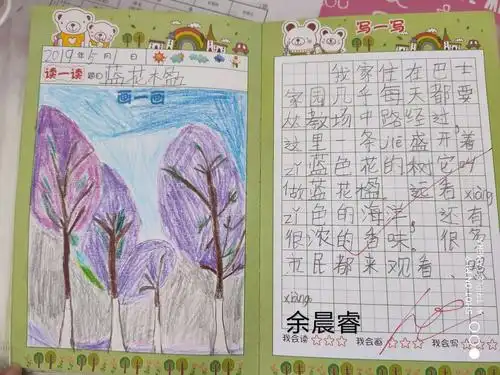 写一写
2019年5月 日
读一读 题目 蓝花木盈
画一画
我家住在巴士
家园几乎每天都要
从教场中路经过,
这里一条jiē盛开着
zǐ蓝色花的树它叫
做蓝花楹。远看xiàng
zǐ色的海洋。还有
很浓的香味。很多
市民都来观看、
xiàng
余晨睿
我会读☆☆☆ 我会画☆☆☆ 我会写☆☆☆